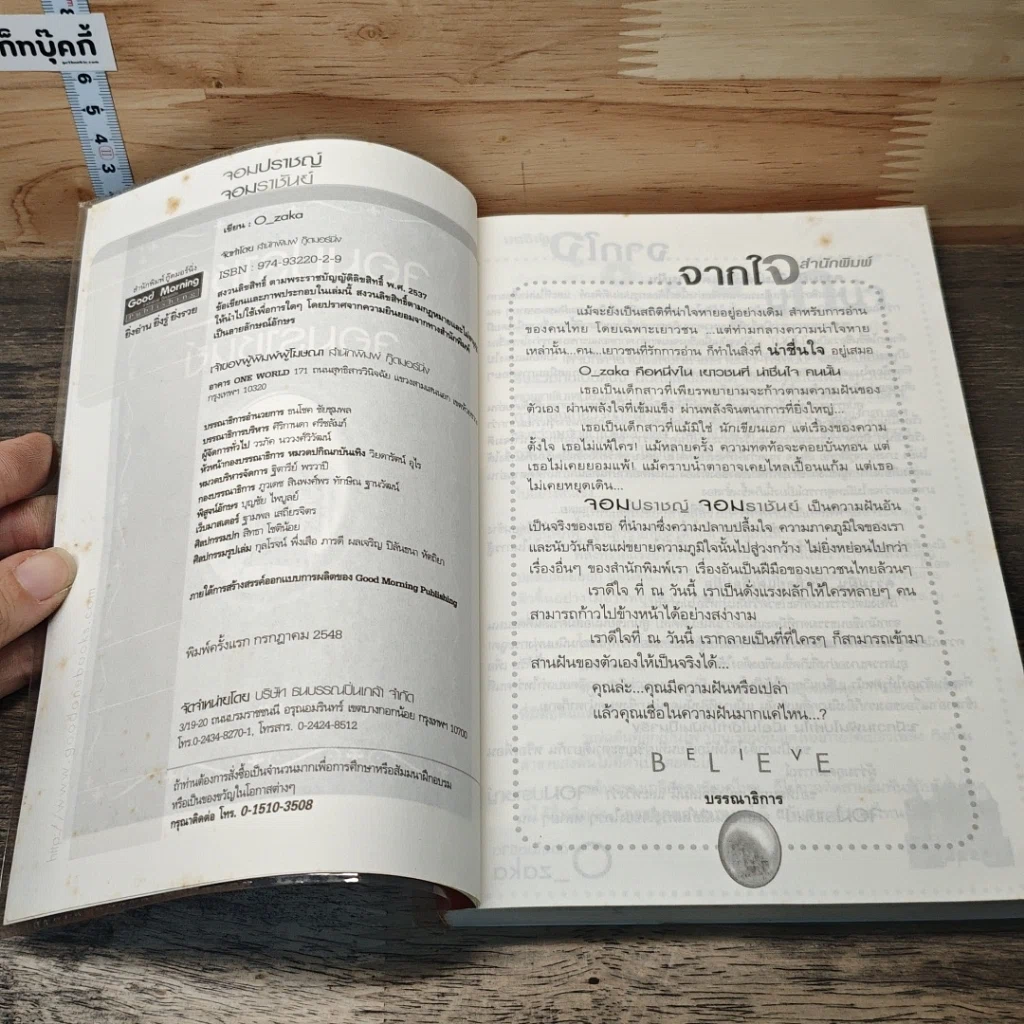 ก็ทบุ๊คกี้
6
5
4
3
จอมปราชญ์
จอมราชันย์
เขียน : O_zaka
จัดทำโดย สำนักพิมพ์ กู๊ดมอร์นิ่ง
ISBN : 974-93220-2-9
สงวนลิขสิทธิ์ ตามพระราชบัญญัติลิขสิทธิ์ พ.ศ. 2537
ข้อเขียนและภาพประกอบในเล่มนี้ สงวนลิขสิทธิ์ตามกฎหมายและไม่
ให้นำไปใช้เพื่อการใดๆ โดยปราศจากความยินยอมจากทางสำนักพิมพ์
เป็นลายลักษณ์อักษร
สำนักพิมพ์กู๊ดมอร์นิ่ง
Good Morning
Publishing
ยิ่งอ่าน ยิ่งรู้ ยิ่งรวย
เจ้าของผู้พิมพ์ผู้โฆษณา สำนักพิมพ์ กู๊ดมอร์นิ่ง
อาคาร ONE WORLD 171 ถนนสุทธิสารวินิจฉัย แขวงสามเสนนอก
กรุงเทพฯ 10320
บรรณาธิการอำนวยการ ธนโชค ชัยชุมพล
บรรณาธิการบริหาร ศิริกานดา ศรีชลัมภ์
ผู้จัดการทั่วไป วรภัค นววงศ์วิวัฒน์
หัวหน้ากองบรรณาธิการ หมวดปกิณกบันเทิง วิยดารัตน์ อุไร
หมวดบริหารจัดการ ฐิตารีย์ พรวาปี
กองบรรณาธิการ ภูวเดช สินพงศ์พร ทักษิณ ฐานวัฒน์
พิสูจน์อักษร บุญชัย ไพบูลย์
เว็บมาสเตอร์ ฐามพล เสถียรจิตร
ศิลปกรรมปก สิทธา โชติน้อย
ศิลปกรรมรูปเล่ม กุลโรจน์ พึ่งเสือ ภารดี ผลเจริญ ปิลันธนา หัตถิยา
ภายใต้การสร้างสรรค์ออกแบบการผลิตของ Good Morning Publishing
พิมพ์ครั้งแรก กรกฎาคม 2548
จัดจำหน่ายโดย บริษัท ธนบรรณปิ่นเกล้า จำกัด
3/19-20 ถนนบรมราชชนนี อรุณอมรินทร์ เขตบางกอกน้อย กรุงเทพฯ 10700
โทร.0-2434-8270-1, โทรสาร. 0-2424-8512
ถ้าท่านต้องการสั่งซื้อเป็นจำนวนมากเพื่อการศึกษาหรือสัมมนาฝึกอบรม
หรือเป็นของขวัญในโอกาสต่างๆ
กรุณาติดต่อ โทร. 0-1510-3508
จากใจสำนักพิมพ์
แม้จะยังเป็นสถิติที่น่าใจหายอยู่อย่างเดิม สำหรับการอ่าน
ของคนไทย โดยเฉพาะเยาวชน ...แต่ท่ามกลางความน่าใจหาย
เหล่านั้น...คน...เยาวชนที่รักการอ่าน ก็ทำในสิ่งที่ น่าชื่นใจ อยู่เสมอ
O_zaka คือหนึ่งใน เยาวชนที่ น่าชื่นใจ คนนั้น
เธอเป็นเด็กสาวที่เพียรพยายามจะก้าวตามความฝันของ
ตัวเอง ผ่านพลังใจที่เข้มแข็ง ผ่านพลังจินตนาการที่ยิ่งใหญ่...
เธอเป็นเด็กสาวที่แม้มิใช่ นักเขียนเอก แต่เรื่องของความ
ตั้งใจ เธอไม่แพ้ใคร! แม้หลายครั้ง ความทดท้อจะคอยบั่นทอน แต่
เธอไม่เคยยอมแพ้! แม้คราบน้ำตาอาจเคยไหลเปื้อนแก้ม แต่เธอ
ไม่เคยหยุดเดิน...
จอมปราชญ์ จอมราชันย์ เป็นความฝันอัน
เป็นจริงของเธอ ที่นำมาซึ่งความปลาบปลื้มใจ ความภาคภูมิใจของเรา
และนับวันก็จะแผ่ขยายความภูมิใจนั้นไปสู่วงกว้าง ไม่ยิ่งหย่อนไปกว่า
เรื่องอื่นๆ ของสำนักพิมพ์เรา เรื่องอันเป็นฝีมือของเยาวชนไทยล้วนๆ
เราดีใจ ที่ ณ วันนี้ เราเป็นดั่งแรงผลักให้ใครหลายๆ คน
สามารถก้าวไปข้างหน้าได้อย่างสง่างาม
เราดีใจที่ ณ วันนี้ เรากลายเป็นที่ที่ใครๆ ก็สามารถเข้ามา
สานฝันของตัวเองให้เป็นจริงได้...
คุณล่ะ...คุณมีความฝันหรือเปล่า
แล้วคุณเชื่อในความฝันมากแค่ไหน...?
BELIEVE
บรรณาธิการ